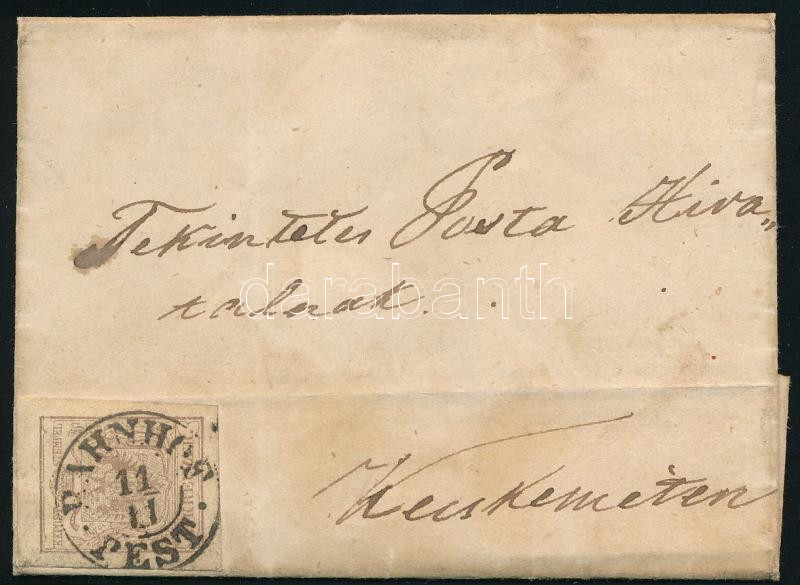 Tekintetes Posta Hiva„
talnak.
Kecskeméten
BAHNHOF
11
11
PEST.
darabanth